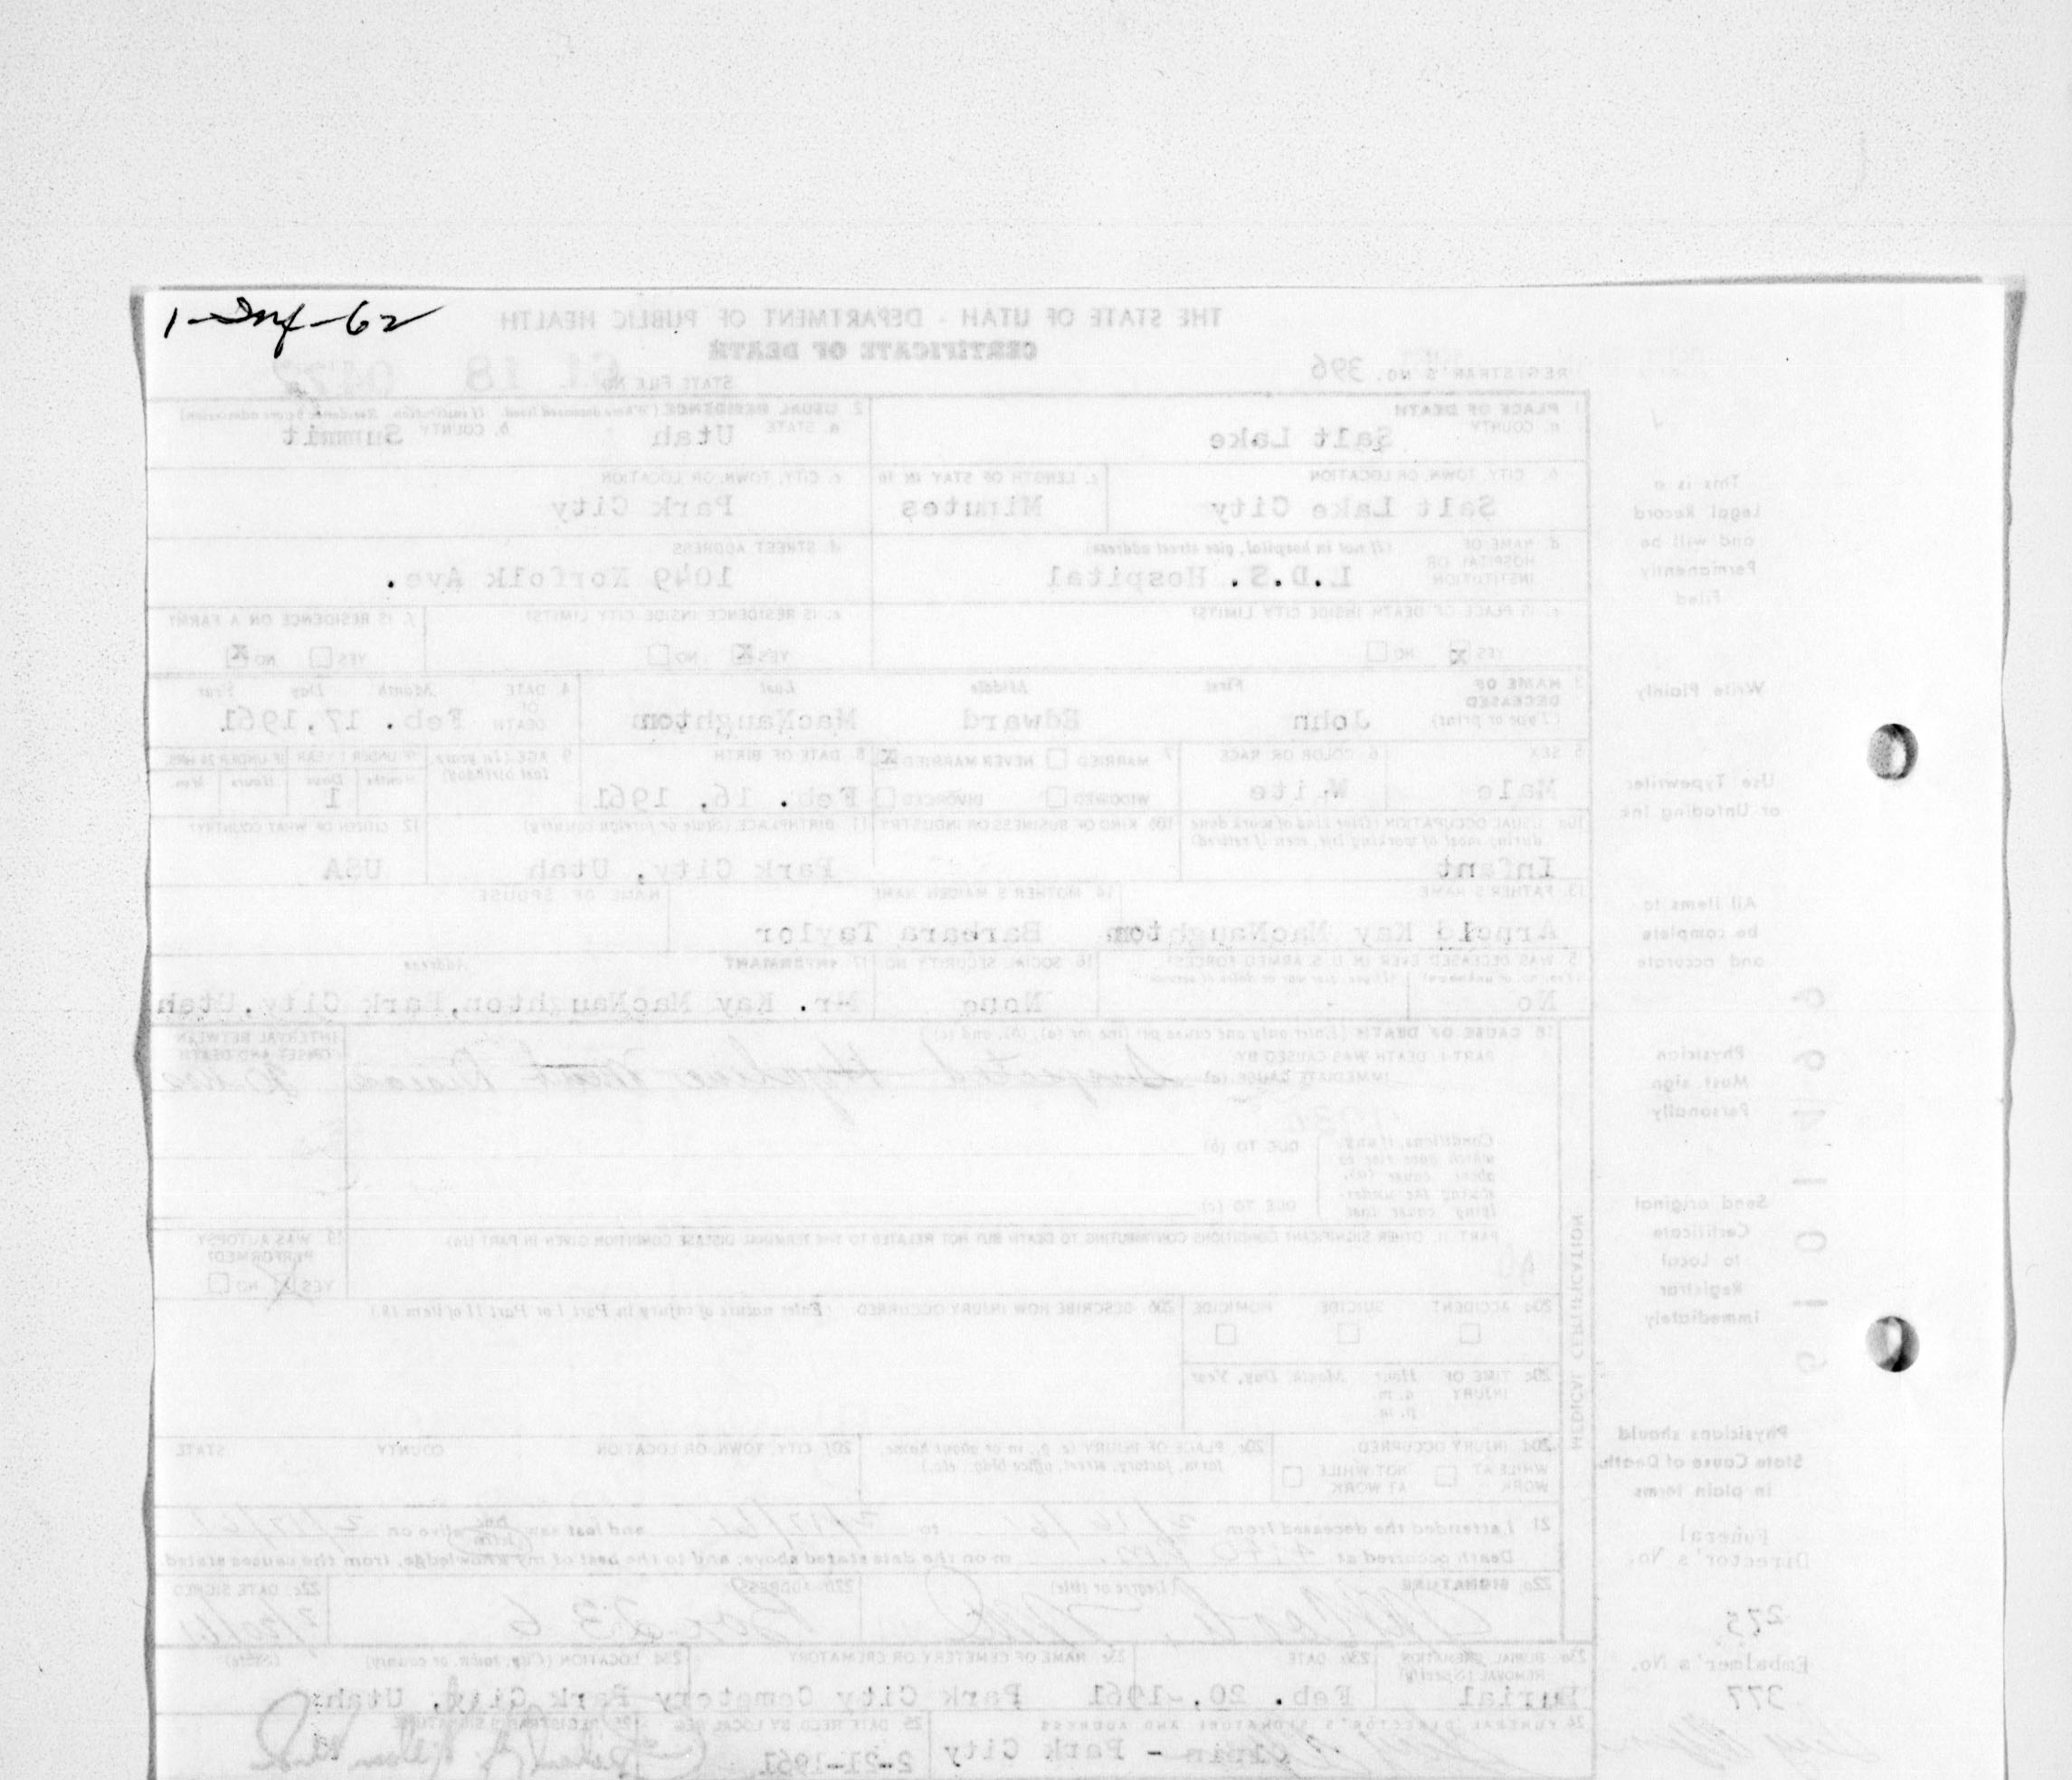 1-Inf-62
THE STATE OF UTAH - DEPARTMENT OF PUBLIC HEALTH
CERTIFICATE OF DEATH
REGISTRAR'S NO. 396
STATE FILE NO. 61 18
1. PLACE OF DEATH
a. COUNTY
Salt Lake
2. USUAL RESIDENCE (Where deceased lived. If institution: Residence before admission)
a. STATE Utah b. COUNTY Summit
b. CITY, TOWN, OR LOCATION
Salt Lake City
c. LENGTH OF STAY IN 1b
Minutes
c. CITY, TOWN, OR LOCATION
Park City
d. NAME OF HOSPITAL OR INSTITUTION (If not in hospital, give street address)
L.D.S. Hospital
d. STREET ADDRESS
1049 Norfolk Ave.
e. IS PLACE OF DEATH INSIDE CITY LIMITS?
YES x NO
e. IS RESIDENCE INSIDE CITY LIMITS?
YES x NO
f. IS RESIDENCE ON A FARM?
YES NO x
3. NAME OF DECEASED (Type or print)
First Middle Last
John Edward MacNaughton
4. DATE OF DEATH Month Day Year
Feb. 17, 1961
5. SEX
Male
6. COLOR OR RACE
White
7. MARRIED NEVER MARRIED x
WIDOWED DIVORCED
8. DATE OF BIRTH
Feb. 16, 1961
9. AGE (In years last birthday)
IF UNDER 1 YEAR IF UNDER 24 HRS.
Months Days Hours Min.
1
10a. USUAL OCCUPATION (Give kind of work done during most of working life, even if retired)
Infant
10b. KIND OF BUSINESS OR INDUSTRY
11. BIRTHPLACE (State or foreign country)
Park City, Utah
12. CITIZEN OF WHAT COUNTRY?
USA
13. FATHER'S NAME
Arnold Kay MacNaughton
14. MOTHER'S MAIDEN NAME
Barbara Taylor
NAME OF SPOUSE
15. WAS DECEASED EVER IN U.S. ARMED FORCES?
(Yes, no, or unknown) (If yes, give war or dates of service)
No -
16. SOCIAL SECURITY NO.
None
17. INFORMANT Address
Mr. Kay MacNaughton, Park City, Utah
18. CAUSE OF DEATH (Enter only one cause per line for (a), (b), and (c))
PART I. DEATH WAS CAUSED BY:
IMMEDIATE CAUSE (a) Suspected Hyaline Disease
INTERVAL BETWEEN ONSET AND DEATH
Conditions, if any, which gave rise to above cause (a), stating the underlying cause last.
DUE TO (b)
DUE TO (c)
PART II. OTHER SIGNIFICANT CONDITIONS CONTRIBUTING TO DEATH BUT NOT RELATED TO THE TERMINAL DISEASE CONDITION GIVEN IN PART I(a)
19. WAS AUTOPSY PERFORMED?
YES NO
20a. ACCIDENT SUICIDE HOMICIDE
20b. DESCRIBE HOW INJURY OCCURRED. (Enter nature of injury in Part I or Part II of item 18.)
20c. TIME OF INJURY Hour Month, Day, Year
a.m.
p.m.
20d. INJURY OCCURRED
WHILE AT WORK NOT WHILE AT WORK
20e. PLACE OF INJURY (e. g., in or about home, farm, factory, street, office bldg., etc.)
20f. CITY, TOWN, OR LOCATION COUNTY STATE
21. I attended the deceased from 2/16/61 to 2/17/61 and last saw him alive on 2/17/61
Death occurred at m on the date stated above; and to the best of my knowledge, from the causes stated.
22a. SIGNATURE (Degree or title)
22b. ADDRESS
Box 236
22c. DATE SIGNED
2/20/61
23a. BURIAL, CREMATION, REMOVAL (Specify)
Burial
23b. DATE
Feb. 20, 1961
23c. NAME OF CEMETERY OR CREMATORY
Park City Cemetery
23d. LOCATION (City, town, or county) (State)
Park City, Utah
24. FUNERAL DIRECTOR'S SIGNATURE AND ADDRESS
Olpin - Park City
25. DATE RECD. BY LOCAL REG.
2-21-1961
26. REGISTRAR'S SIGNATURE
MEDICAL CERTIFICATION
This is a
Legal Record
and will be
Permanently
Filed
Write Plainly
Use Typewriter
or Unfading Ink
All Items to
be complete
and accurate
Physician
Must sign
Personally
Send original
Certificate
to Local
Registrar
Immediately
Physicians should
State Cause of Death
in plain terms
Funeral
Director's No.
275
Embalmer's No.
377